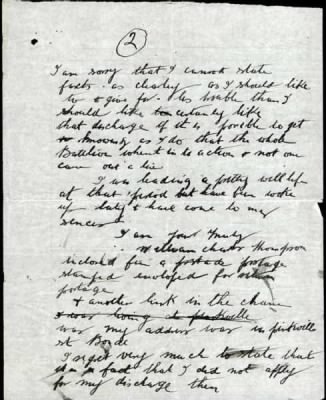 (2)
I am sorry that I cannot state
facts. as clearly as I should like
to & give for. less trouble than I
should like certantly like
that discharge if it is possible to get
Knowing as I do that the whole
Battalion went in to action & not one
came out a live
I was leading a pretty well life
at that period but have been woke
up lately & have come to my
sences
I am your truly
William Charles Thompson
inclosed fee a postage
stamped enveloped for
postage
& another link in the chain
& was living at
was my address was in
st Bo
I regret very much to state that
it is a fact that I did not apply
for my discharge then